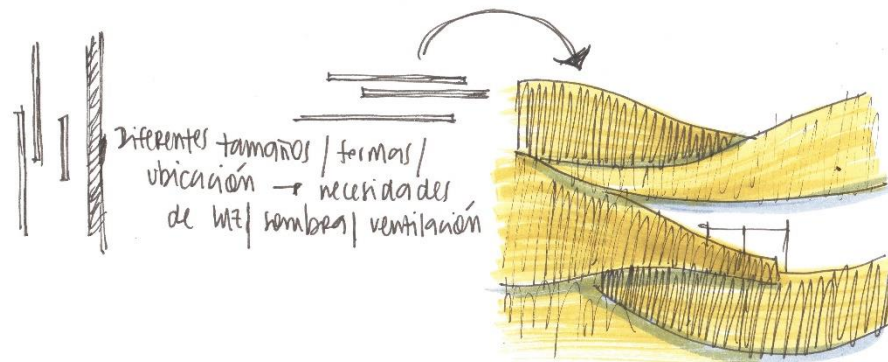 Diferentes tamaños / formas /
ubicación → necesidades
de luz / sombra / ventilación